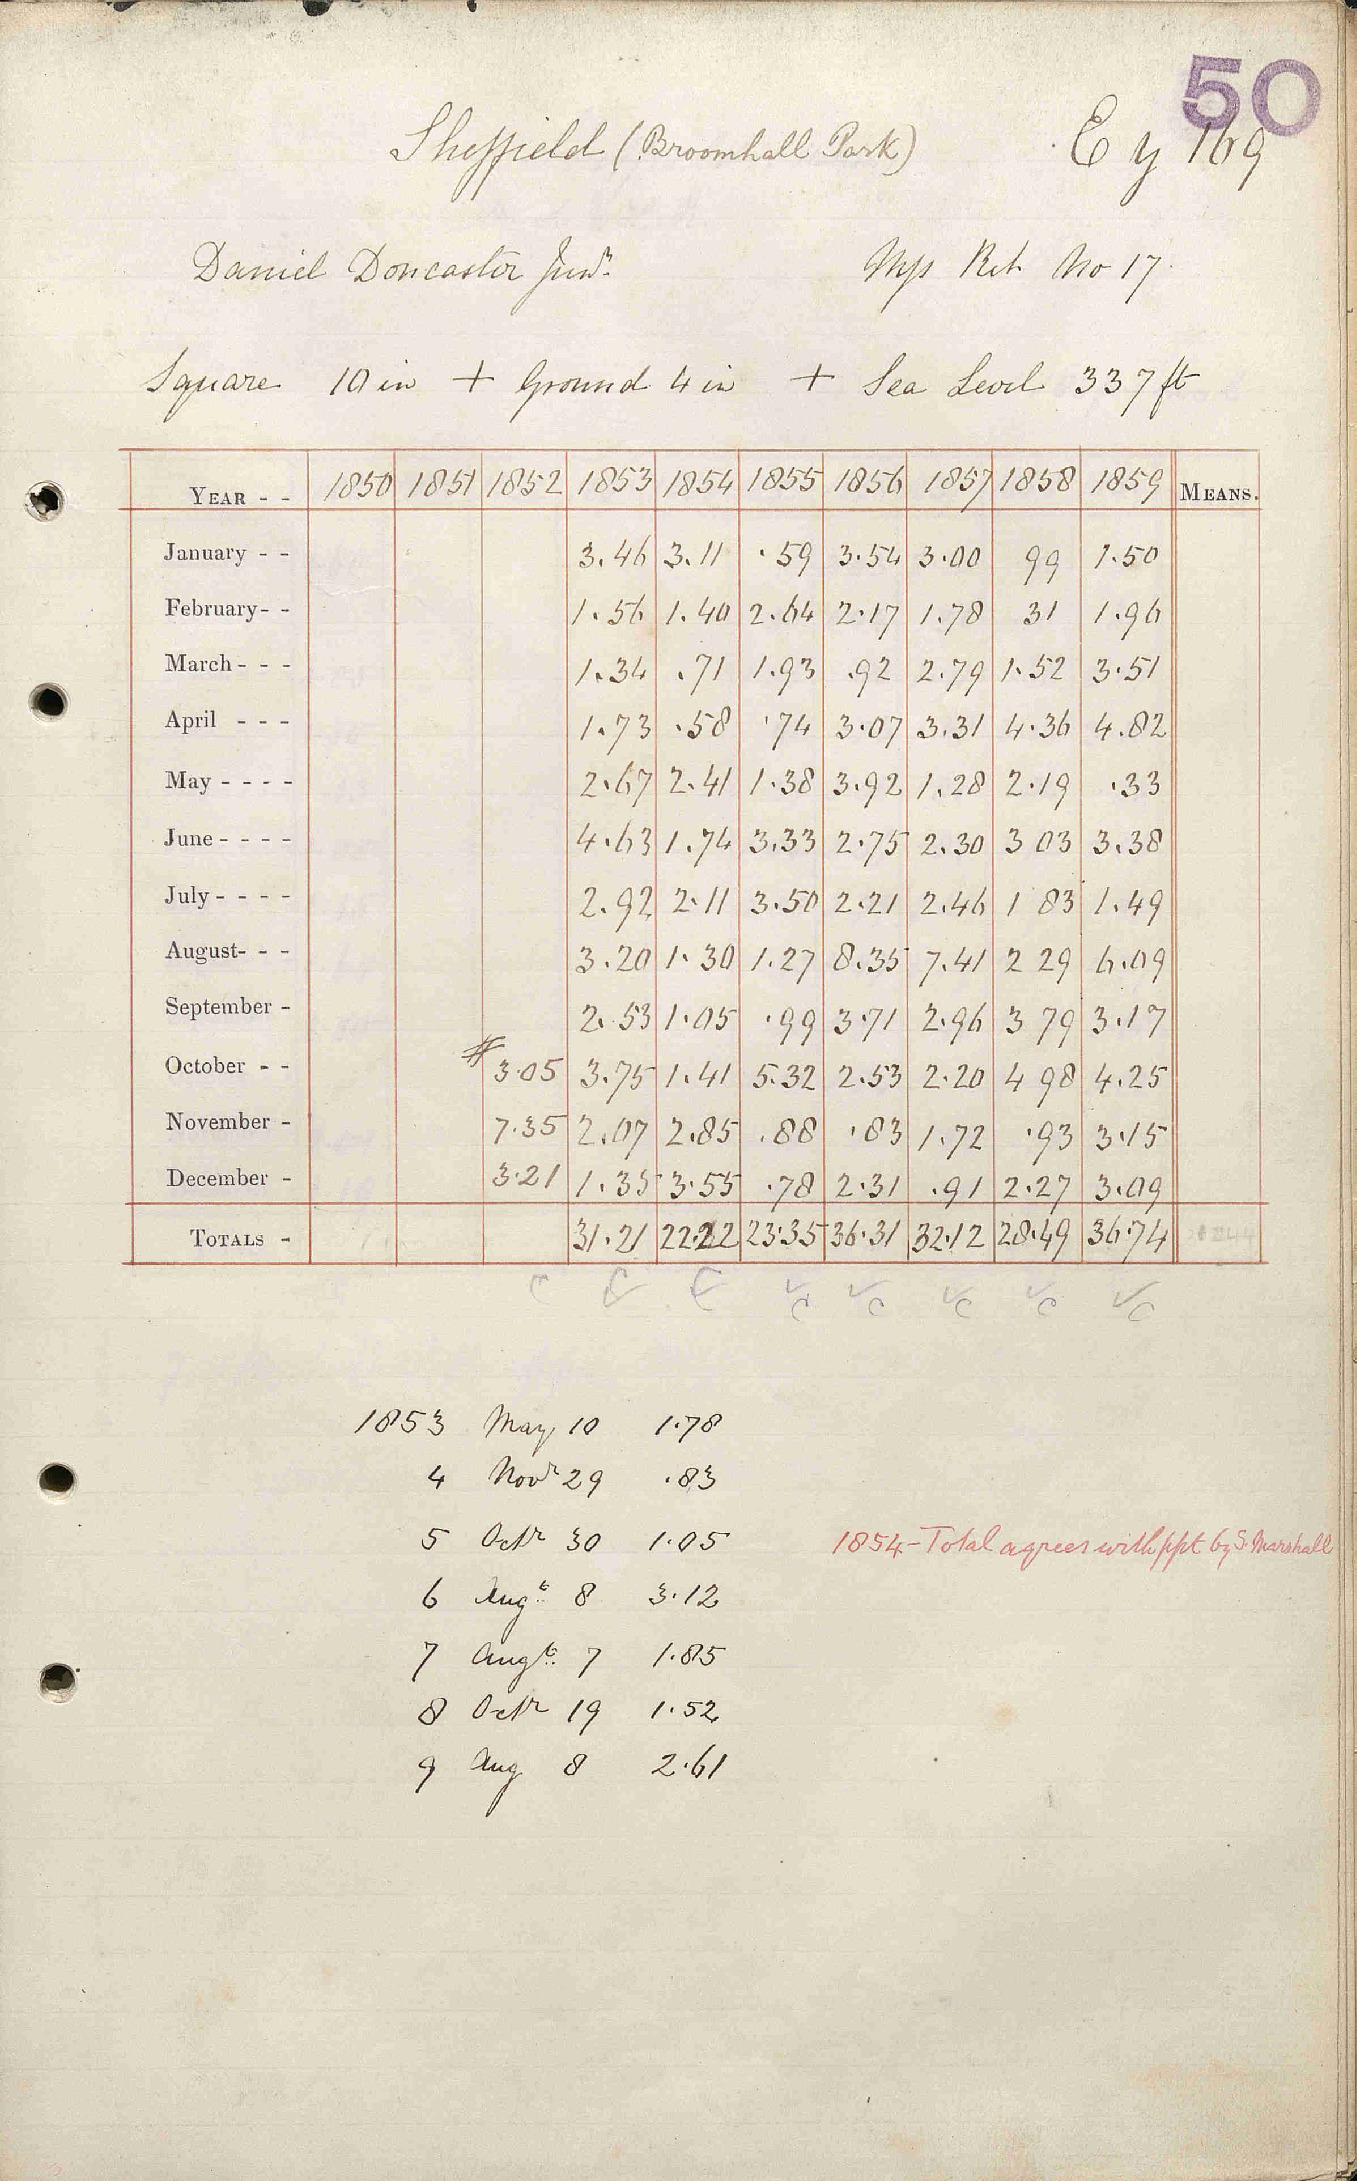 50
Sheffield (Broomhall Park) Ey 169
Daniel Doncaster Junr. Mss Ret. No 17.
Square 10 in + Ground 4 in + Sea Level 337 ft
YEAR - - 1850 1851 1852 1853 1854 1855 1856 1857 1858 1859 MEANS.
January - - 3.46 3.11 .59 3.54 3.00 99 1.50
February - - 1.56 1.40 2.64 2.17 1.78 31 1.96
March - - - 1.34 .71 1.93 .92 2.79 1.52 3.51
April - - - 1.73 .58 .74 3.07 3.31 4.36 4.82
May - - - - 2.67 2.41 1.38 3.92 1.28 2.19 .33
June - - - - 4.63 1.74 3.33 2.75 2.30 3 03 3.38
July - - - - 2.92 2.11 3.50 2.21 2.46 1 83 1.49
August - - - 3.20 1.30 1.27 8.35 7.41 2 29 6.09
September - 2.53 1.05 .99 3.71 2.96 3 79 3.17
October - - # 3.05 3.75 1.41 5.32 2.53 2.20 4 98 4.25
November - 7.35 2.07 2.85 .88 .83 1.72 .93 3.15
December - 3.21 1.35 3.55 .78 2.31 .91 2.27 3.09
TOTALS - 31.21 22.22 23.35 36.31 32.12 28.49 36.74
1853 May 10 1.78
4 Novr 29 .83
5 Octr 30 1.05
1854 - Total agrees with ppt by S. Marshall
6 Augt. 8 3.12
7 Augt. 7 1.85
8 Octr 19 1.52
9 Aug 8 2.61